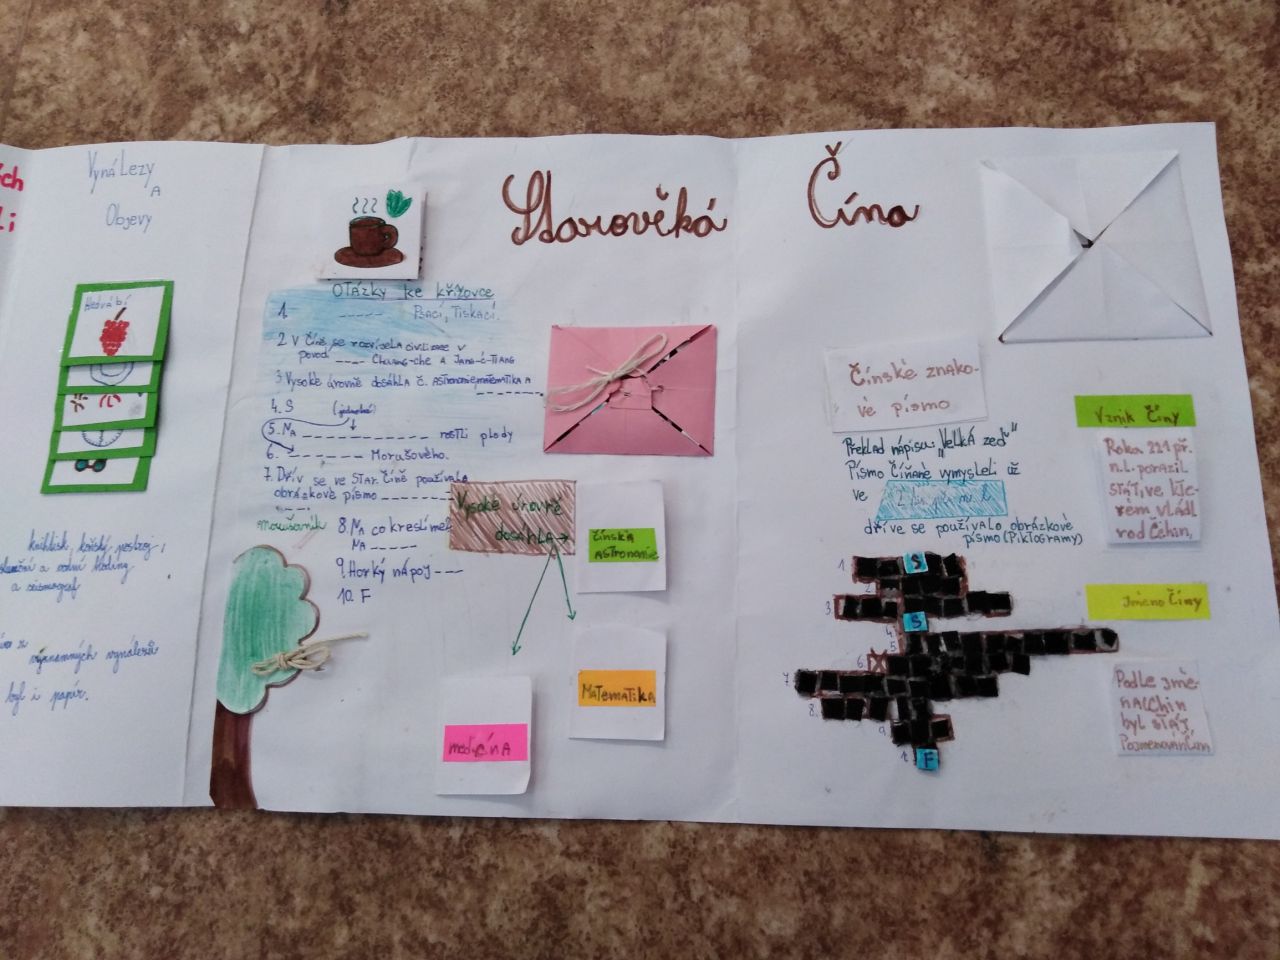 ých
li
Vynálezy
A
Objevy
Hedvábí
knihtisk, koňský postroj,
a vodní hodiny
a seismograf
významných vynálezů
byl i papír.
Starověká Čína
Otázky ke křížovce
1. _____ Psací, Tiskací.
2 V Číně se rozvíjela civilizace v
povodí ____ Chuang-che a Jang-č-Tiang
3 Vysoké úrovně dosáhla č. astronomie, matematika a
_______
4. S (jednotné)
5. Na ______________ rostli plody
6. ________ Morušového.
7. Dřív se ve star. Číně používalo
obrázkové písmo ________
8. Na co kreslíme?
Na _____
9. Horký nápoj ___
10. F
Moušovník
Vysoké úrovně
dosáhla→
čínská
astronomie
Matematika
medicína
Čínské znako-
vé písmo
Překlad nápisu: „Velká zeď“
Písmo Číňané vymysleli už
ve
dříve se používalo obrázkové
písmo (Piktogramy)
1.
2.
3.
4.
5.
6.
7.
8.
9.
S
S
F
Vznik Číny
Roku 221 př.
n.l. porazil
stát, ve kte-
rém vládl
rod Čchin,
Jméno Číny
Podle jmé-
na Čchin
byl stát
Pojmenován